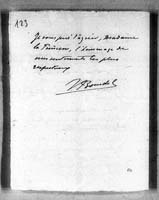 123
Je vous prie d'agréer, Madame
la Princesse, l'hommage de
mes sentiments les plus
respectueux